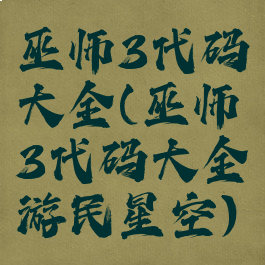 巫师3代码
大全(巫师
3代码大全
游民星空)